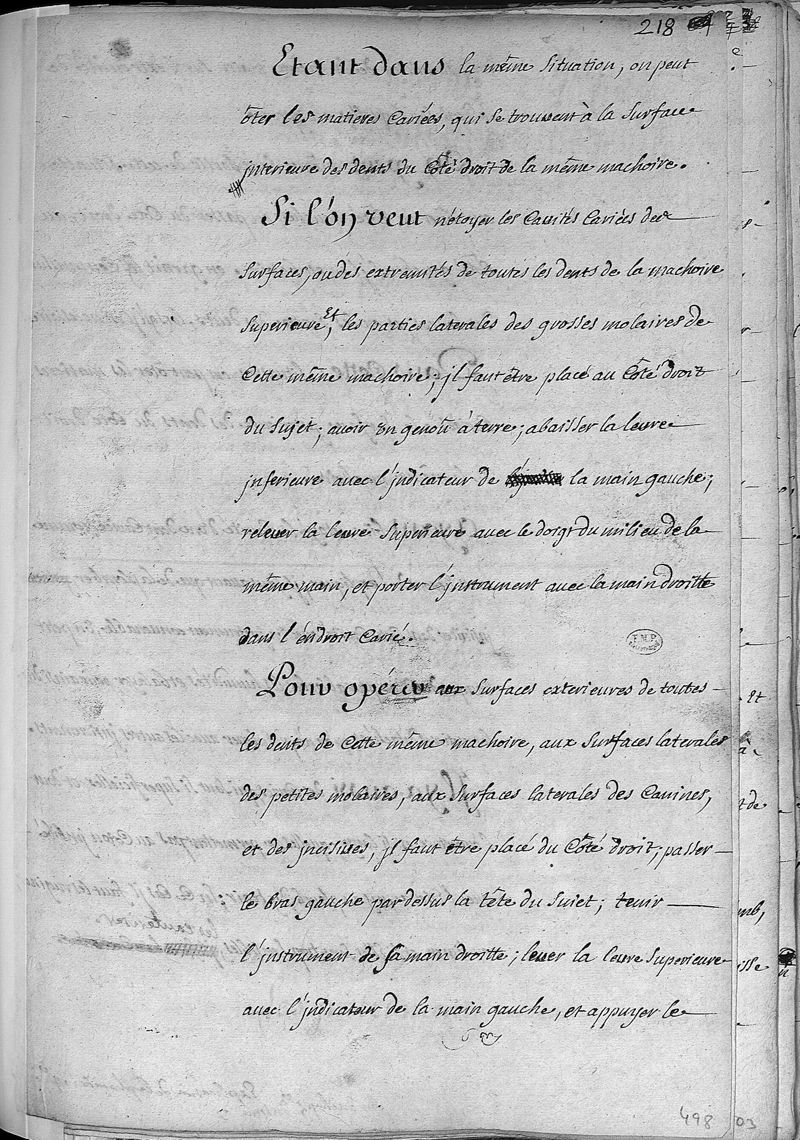 218
Etant dans la même situation, on peut
ôter les matieres Cariées, qui se trouvent à la surface
jnterieure des dents du Côté droit de la même machoire.
Si l'on veut nétoyer les Cavités Cariées des
surfaces, ou des extremités de toutes les dents de la machoire
superieure, Et les parties laterales des grosses molaires de
Cette même machoire; jl faut être placé au Côté droit
du sujet; avoir un genoü à terre; abaisser la levre
jnferieure avec l'jndicateur de la main gauche;
relever la levre superieure avec le doigt du milieu de la
même main, et porter l'jnstrument avec la main droitte
dans l'éndroit Carié.
Pour opérer aux surfaces exterieures de toutes
les dents de Cette même machoire, aux surfaces laterales
des petites molaires, aux surfaces laterales des Canines,
et des jncisives, jl faut être placé du Côté droit, passer
le bras gauche par dessus la tête du sujet; tenir
l'jnstrument de sa main droitte; lever la levre superieure
avec l'jndicateur de la main gauche, et appuyer le
498
03